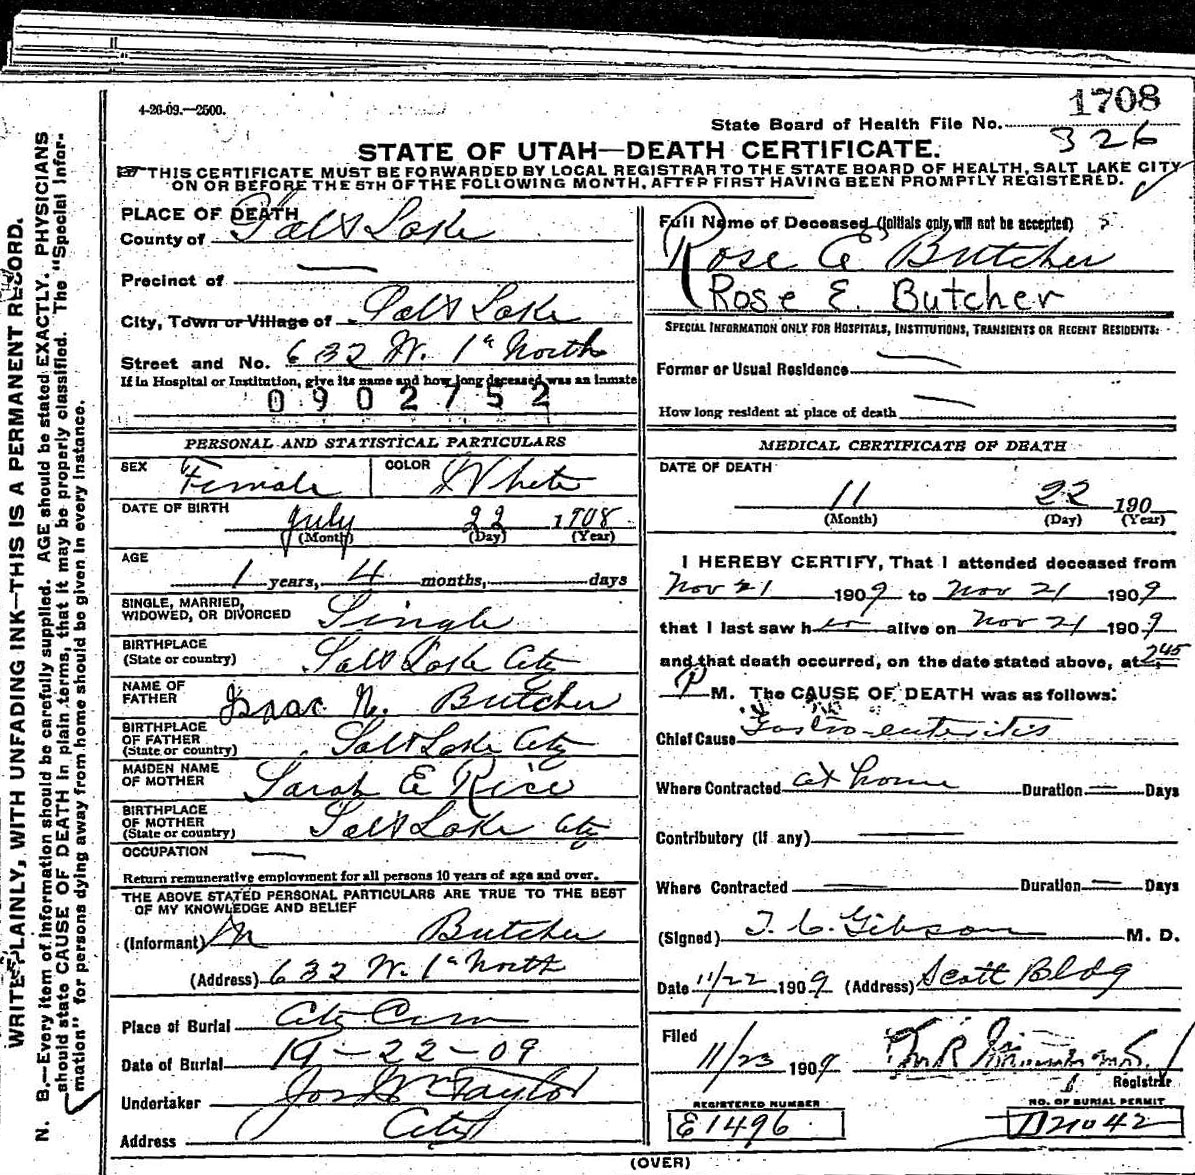 WRITE PLAINLY, WITH UNFADING INK—THIS IS A PERMANENT RECORD.
N. B.—Every item of information should be carefully supplied. AGE should be stated EXACTLY. PHYSICIANS
should state CAUSE OF DEATH in plain terms, that it may be properly classified. The "Special Infor-
mation" for persons dying away from home should be given in every instance.
4-26-09.—2500.
1708
State Board of Health File No.
326
STATE OF UTAH—DEATH CERTIFICATE.
THIS CERTIFICATE MUST BE FORWARDED BY LOCAL REGISTRAR TO THE STATE BOARD OF HEALTH, SALT LAKE CITY
ON OR BEFORE THE 5TH OF THE FOLLOWING MONTH, AFTER FIRST HAVING BEEN PROMPTLY REGISTERED.
PLACE OF DEATH
County of Salt Lake
Precinct of —
City, Town or Village of Salt Lake
Street and No. 632 W. 1st North
If in Hospital or Institution, give its name and how long deceased was an inmate
0902752
PERSONAL AND STATISTICAL PARTICULARS
SEX Female COLOR White
DATE OF BIRTH
July 22 1908
(Month) (Day) (Year)
AGE
1 years, 4 months, days
SINGLE, MARRIED,
WIDOWED, OR DIVORCED Single
BIRTHPLACE
(State or country) Salt Lake City
NAME OF
FATHER Isaac N. Butcher
BIRTHPLACE
OF FATHER
(State or country) Salt Lake City
MAIDEN NAME
OF MOTHER Sarah E Rice
BIRTHPLACE
OF MOTHER
(State or country) Salt Lake City
OCCUPATION —
Return remunerative employment for all persons 10 years of age and over.
THE ABOVE STATED PERSONAL PARTICULARS ARE TRUE TO THE BEST
OF MY KNOWLEDGE AND BELIEF
(Informant) Butcher
(Address) 632 W. 1st North
Place of Burial City Cem
Date of Burial 11-22-09
Undertaker Jos Wm Taylor
Address City
Full Name of Deceased (Initials only, will not be accepted)
Rose E Butcher
Rose E. Butcher
SPECIAL INFORMATION ONLY FOR HOSPITALS, INSTITUTIONS, TRANSIENTS OR RECENT RESIDENTS:
Former or Usual Residence —
How long resident at place of death —
MEDICAL CERTIFICATE OF DEATH
DATE OF DEATH
11 22 190
(Month) (Day) (Year)
I HEREBY CERTIFY, That I attended deceased from
Nov 21 1909 to Nov 21 1909
that I last saw her alive on Nov 21 1909
and that death occurred, on the date stated above, at 245
P M. The CAUSE OF DEATH was as follows:
Chief Cause Gastro-enteritis
Where Contracted at home Duration — Days
Contributory (if any) —
Where Contracted — Duration — Days
(Signed) T. C. Gibson M. D.
Date 11/22 1909 (Address) Scott Bldg
Filed
11/23 1909
Registrar
REGISTERED NUMBER
E1496
NO. OF BURIAL PERMIT
D21042
(OVER)